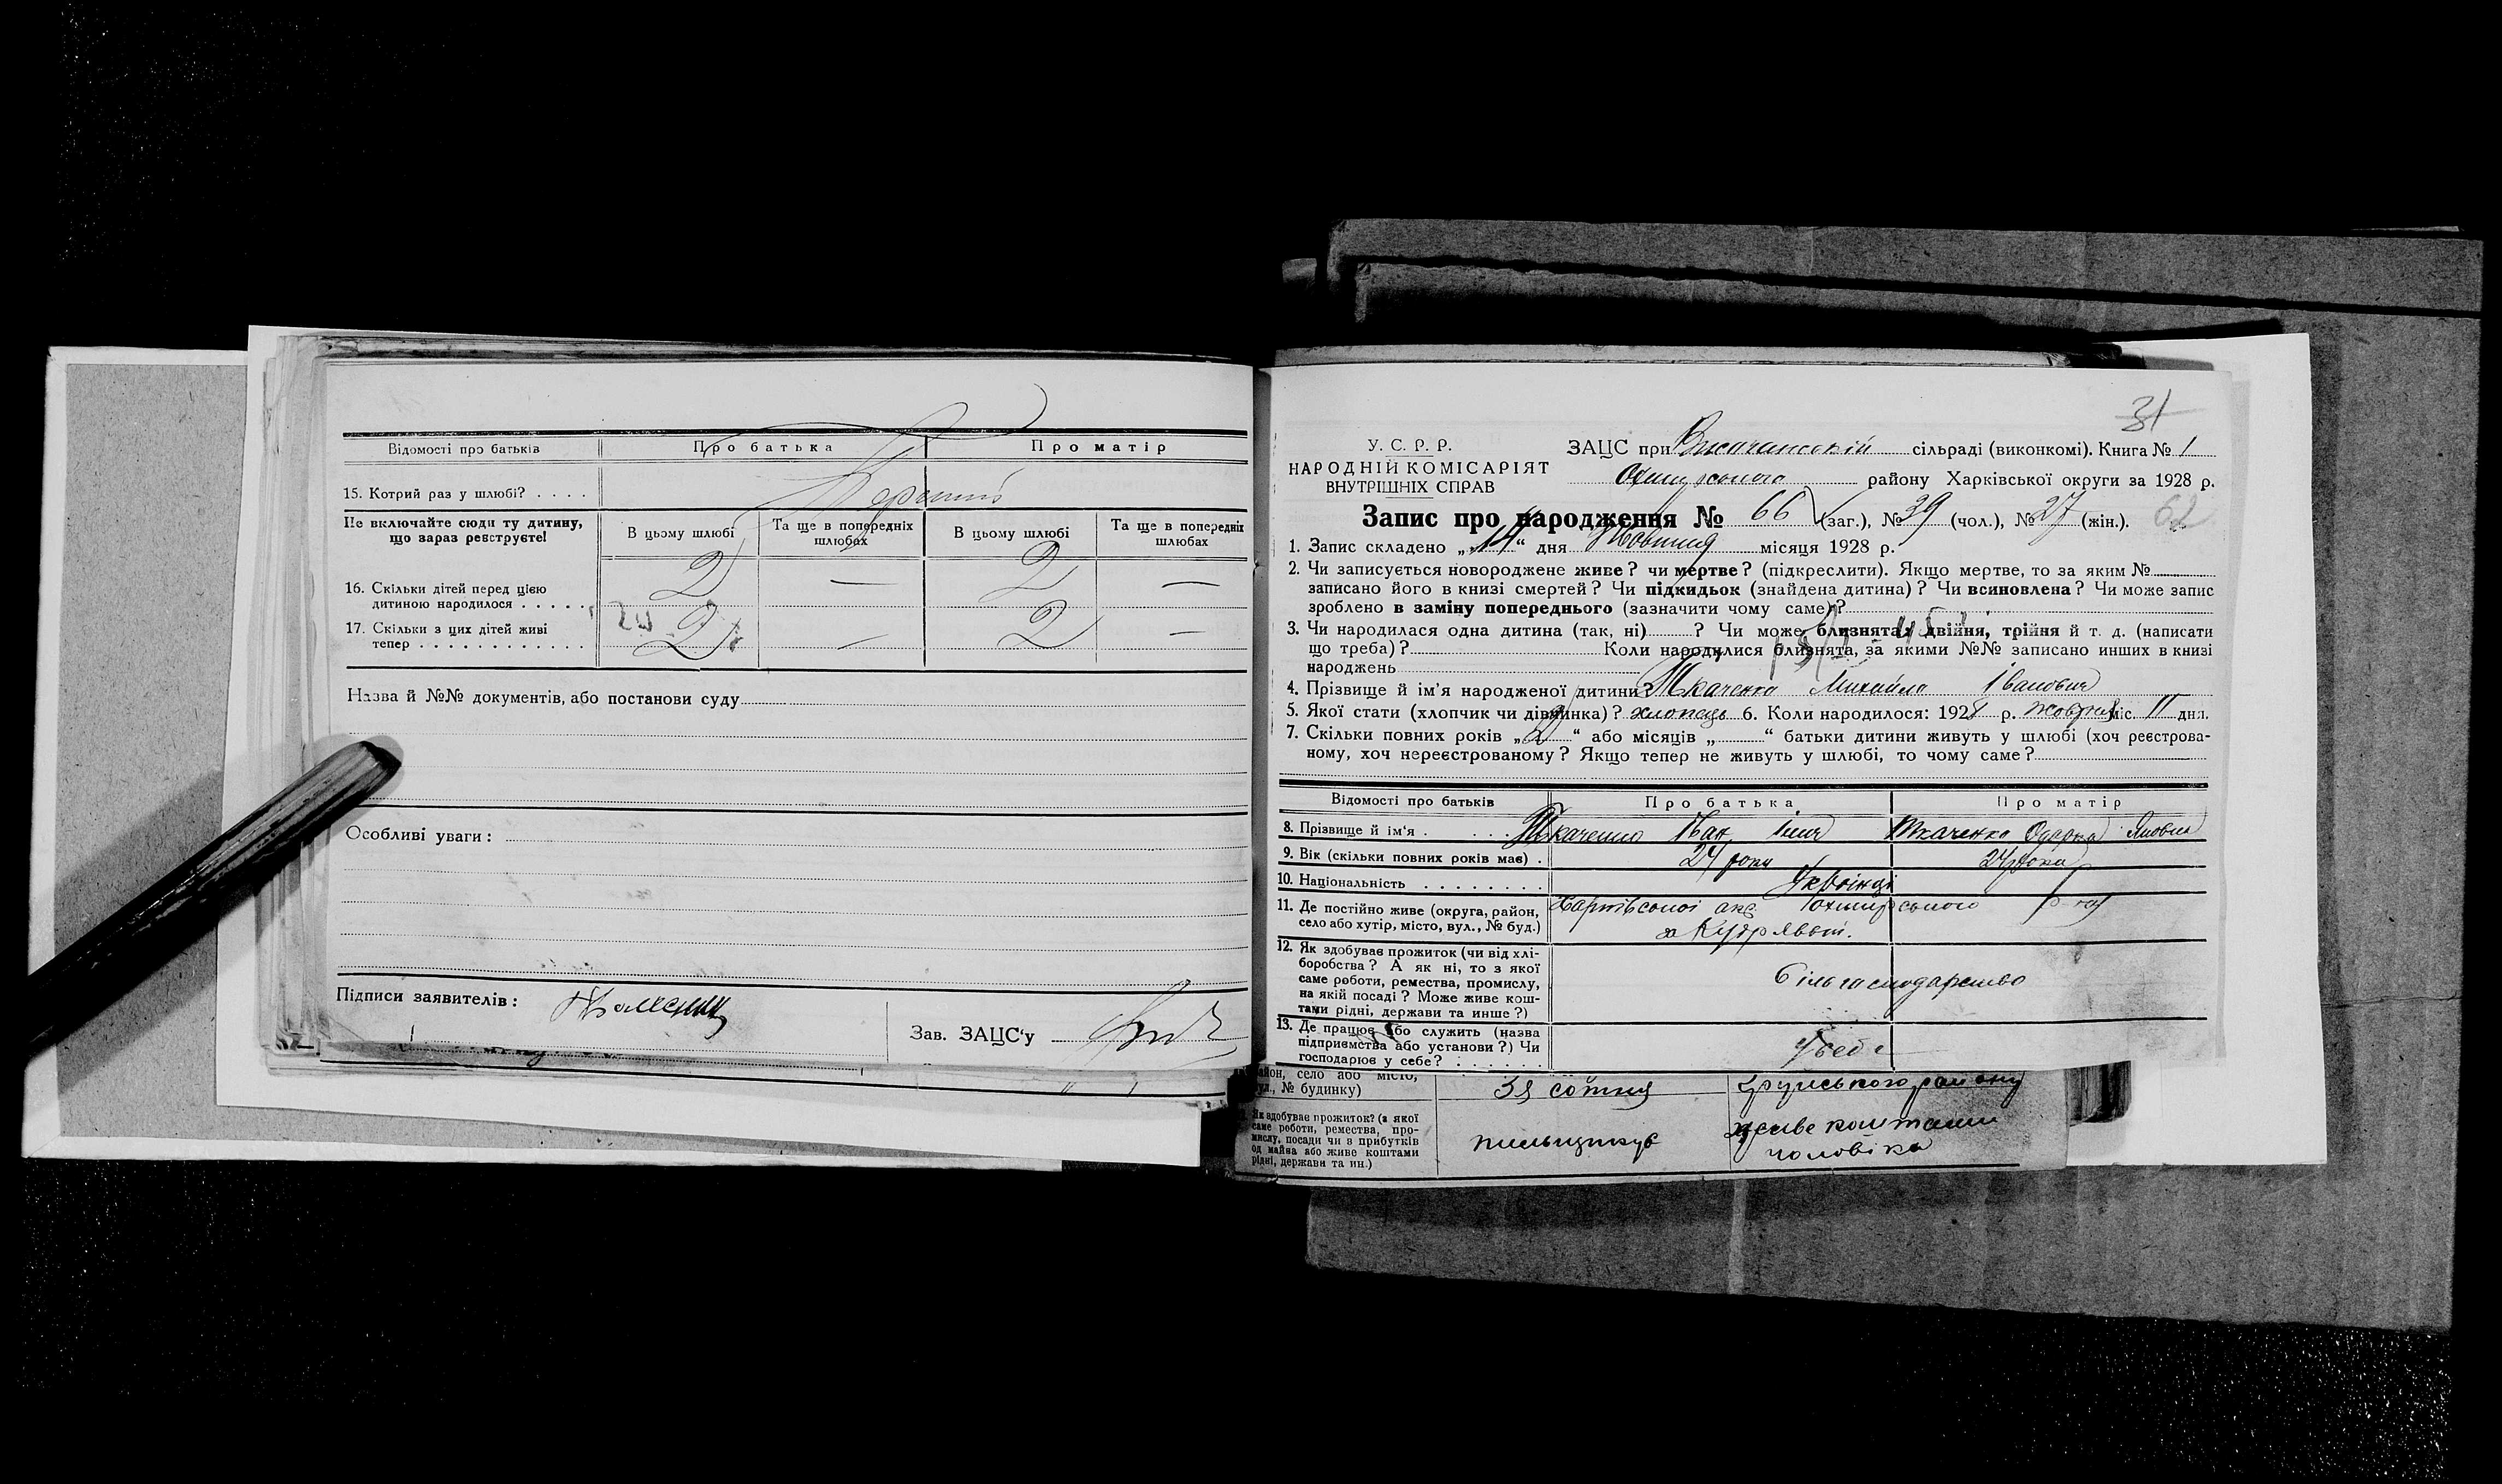 Відомості про батьків Про батька Про матір
15. Котрий раз у шлюбі? . . . . Перший
Не включайте сюди ту дитину, що зараз реєструєте!
В цьому шлюбі Та ще в попередніх шлюбах В цьому шлюбі Та ще в попередніх шлюбах
16. Скільки дітей перед цією
дитиною народилося . . . . . 2 — 2 —
17. Скільки з цих дітей живі
тепер . . . . . . . . . . . . 2 — 2 —
Назва й №№ документів, або постанови суду
Особливі уваги:
Підписи заявителів:
Зав. ЗАЦС'у
31
У. С. Р. Р.
НАРОДНІЙ КОМІСАРІЯТ
ВНУТРІШНІХ СПРАВ
ЗАЦС при сільраді (виконкомі). Книга № 1
району Харківської округи за 1928 р.
Запис про народження № 66 (заг.), № 39 (чол.), № 27 (жін.). 62
1. Запис складено „14“ дня Жовтня місяця 1928 р.
2. Чи записується новороджене живе? чи мертве? (підкреслити). Якщо мертве, то за яким №
записано його в книзі смертей? Чи підкидьок (знайдена дитина)? Чи всиновлена? Чи може запис
зроблено в заміну попереднього (зазначити чому саме)?
3. Чи народилася одна дитина (так, ні) ? Чи може близнята: двійня, трійня й т. д. (написати
що треба)? Коли народилися близнята, за якими №№ записано инших в книзі
народжень
4. Прізвище й ім'я народженої дитини? Ткаченко Михайло Іванович
5. Якої стати (хлопчик чи дівчинка)? хлопець 6. Коли народилося: 1928 р. жовтня міс. 11 дня.
7. Скільки повних років „2“ або місяців „ “ батьки дитини живуть у шлюбі (хоч реєстрова-
ному, хоч нереєстрованому? Якщо тепер не живуть у шлюбі, то чому саме?
Відомості про батьків Про батька Про матір
8. Прізвище й ім'я . . . . . Ткаченко Іван Ткаченко Одарка
9. Вік (скільки повних років має) . 24 роки 24 роки
10. Національність . . . . . . . . Українці
11. Де постійно живе (округа, район,
село або хутір, місто, вул., № буд.)
Харківської окр.
12. Як здобуває прожиток (чи від хлі-
боробства? А як ні, то з якої
саме роботи, ремества, промислу,
на якій посаді? Може живе кош-
тами рідні, держави та инше?)
Сільгосподарство
13. Де працює або служить (назва
підприємства або установи?) Чи
господарює у себе? . . . . . .
У себе
район, село або місто,
вул., № будинку) сотня району
Як здобуває прожиток? (з якої
саме роботи, ремества, про-
мислу, посади чи з прибутків
од майна або живе коштами
рідні, держави та ин.)
живе коштами
чоловіка